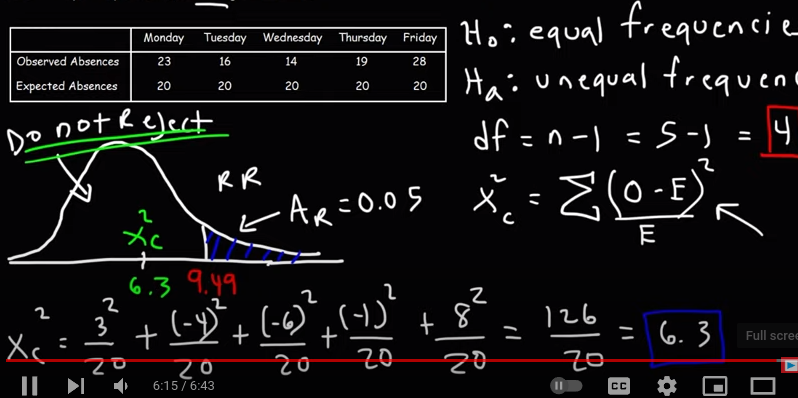 Monday Tuesday Wednesday Thursday Friday
Observed Absences 23 16 14 19 28
Expected Absences 20 20 20 20 20
H₀: equal frequencie
Hₐ: unequal frequen
df = n-1 = 5-1 = 4
Do not Reject
RR
A_R = 0.05
X²_c = Σ (O-E)²/E
X²_c
6.3 9.49
X²_c = 3²/20 + (-4)²/20 + (-6)²/20 + (-1)²/20 + 8²/20 = 126/20 = 6.3
Full scree
6:15 / 6:43
CC